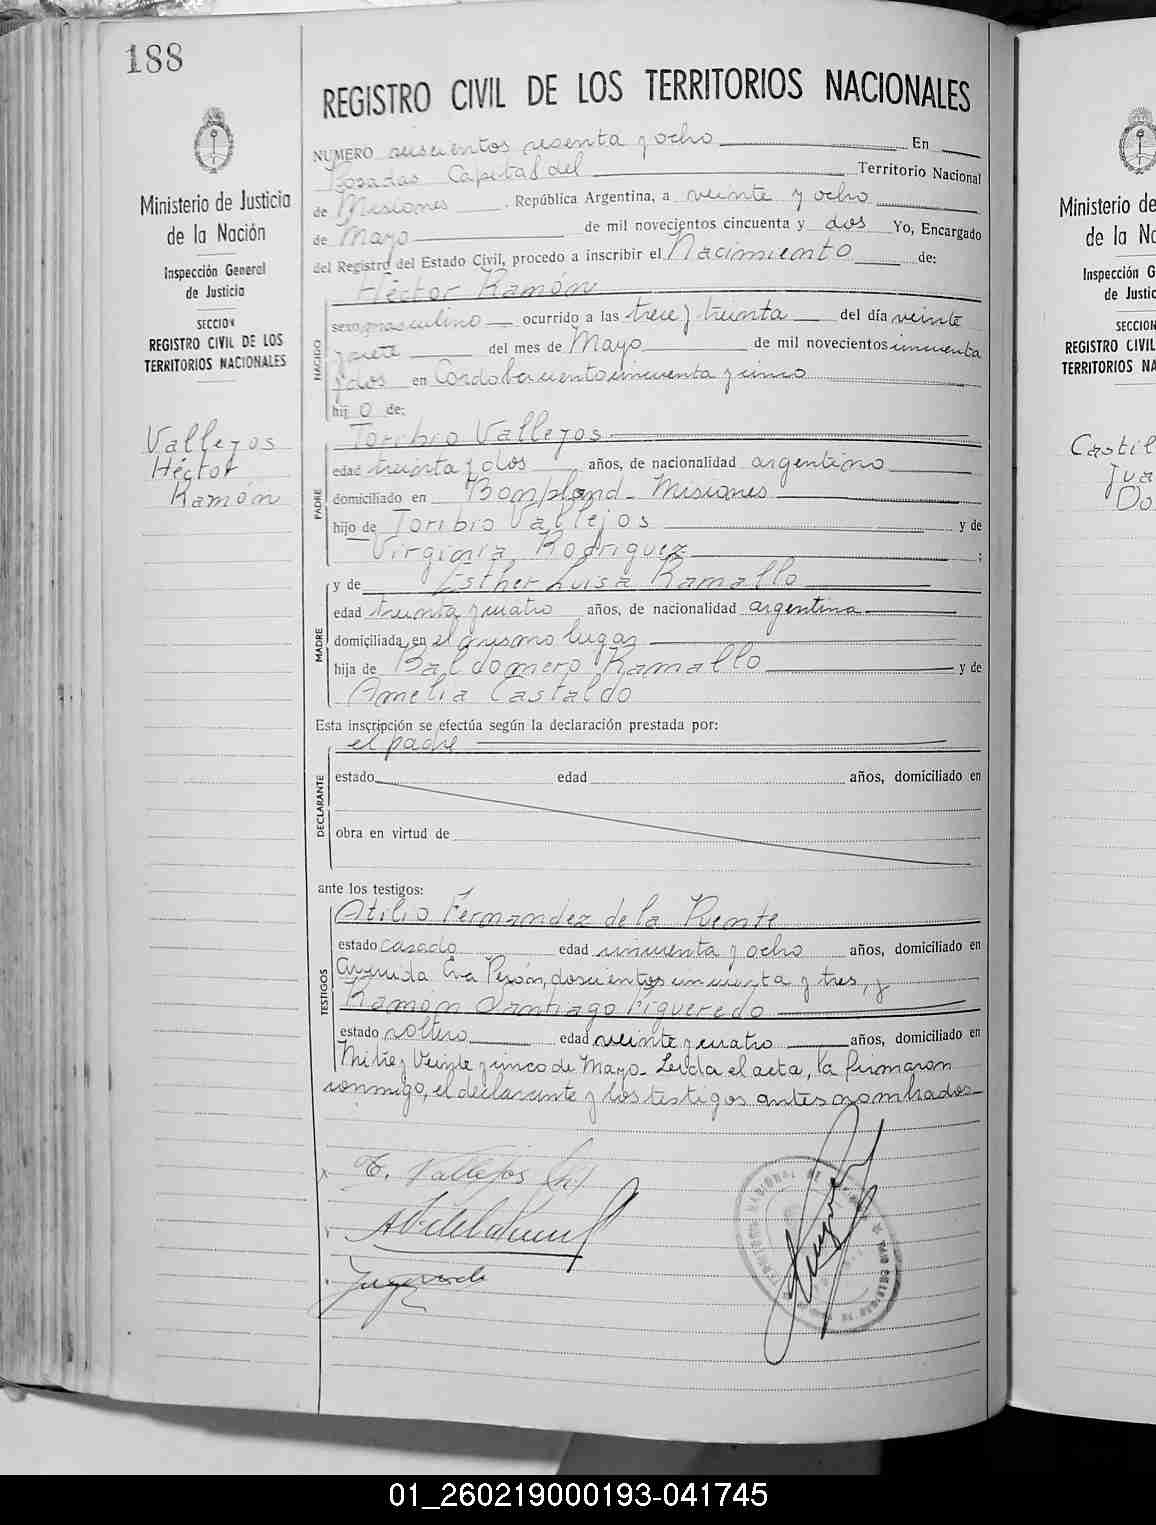 188
REGISTRO CIVIL DE LOS TERRITORIOS NACIONALES
Ministerio de Justicia
de la Nación
Inspección General
de Justicia
SECCION
REGISTRO CIVIL DE LOS
TERRITORIOS NACIONALES
Vallejos
Héctor
Ramón
NUMERO seiscientos sesenta y ocho En
Posadas Capital del Territorio Nacional
de Misiones, República Argentina, a veinte y ocho
de Mayo de mil novecientos cincuenta y dos Yo, Encargado
del Registro del Estado Civil, procedo a inscribir el Nacimiento de:
Héctor Ramón
NACIDO
sexo masculino ocurrido a las trece y treinta del día veinte
y siete del mes de Mayo de mil novecientos cincuenta
y dos en Córdoba ciento cincuenta y cinco
hij o de:
PADRE
Toribio Vallejos
edad treinta y dos años, de nacionalidad argentino
domiciliado en Bonpland - Misiones
hijo de Toribio Vallejos y de
Virginia Rodriguez ;
MADRE
y de Esther Luisa Ramallo
edad treinta y cuatro años, de nacionalidad argentina
domiciliada en el mismo lugar
hija de Baldomero Ramallo y de
Amelia Castaldo
Esta inscripción se efectúa según la declaración prestada por:
DECLARANTE
el padre
estado edad años, domiciliado en
obra en virtud de
ante los testigos:
TESTIGOS
Atilio Fernandez de la Puente
estado casado edad cincuenta y ocho años, domiciliado en
Avenida Eva Perón, doscientos cincuenta y tres, y
Ramón Santiago Figueredo
estado soltero edad veinte y cuatro años, domiciliado en
Mitre y Veinte y cinco de Mayo. Leída el acta, la firmaron
conmigo, el declarante y los testigos antes nombrados
T. Vallejos (h)
Figueredo
Ministerio de
de la Na
Inspección G
de Justic
SECCION
REGISTRO CIVIL
TERRITORIOS NA
Castil
Jua
Do
01_260219000193-041745